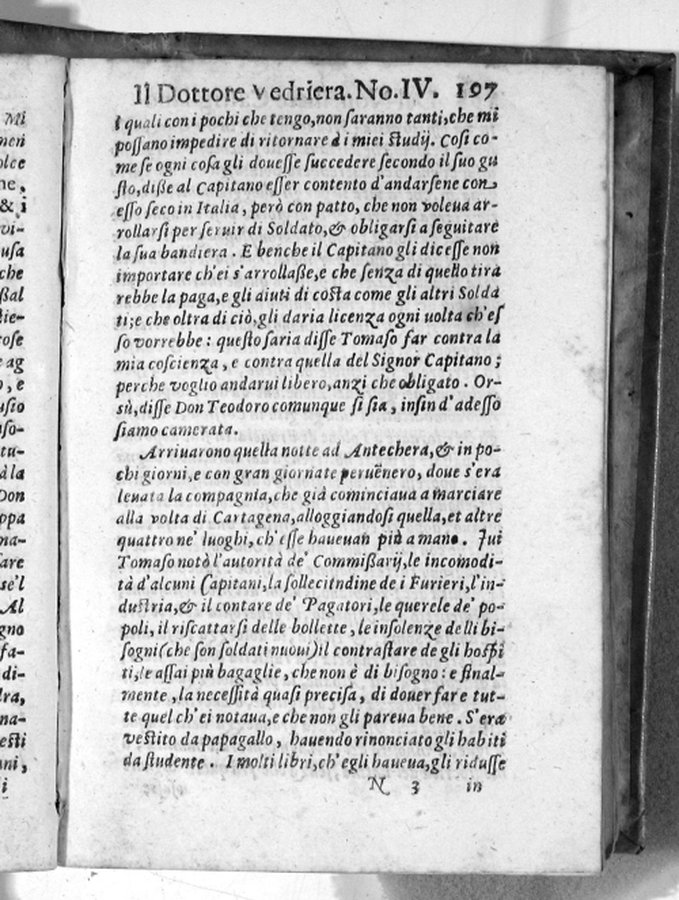 Il Dottore Vedriera. No. IV. 197
i quali con i pochi che tengo, non saranno tanti, che mi
possano impedire di ritornare à i miei studij. Cosi co-
me se ogni cosa gli douesse succedere secondo il suo gu
sto, disse al Capitano esser contento d'andarsene con
esso seco in Italia, però con patto, che non voleua ar-
rollarsi per seruir di Soldato, & obligarsi a seguitare
la sua bandiera. E benche il Capitano gli dicesse non
importare ch'ei s'arrollasse, e che senza di questo tira
rebbe la paga, e gli aiuti di costa come gli altri Solda
ti; e che oltra di ciò, gli daria licenza ogni uolta ch'es
so vorrebbe: questo saria disse Tomaso far contra la
mia coscienza, e contra quella del Signor Capitano;
perche voglio andarui libero, anzi che obligato. Or-
sù, disse Don Teodoro comunque si sia, insin d'adesso
siamo camerata.
Arriuarono quella notte ad Antechera, & in po-
chi giorni, e con gran giornate peruẽnero, doue s'era
leuata la compagnia, che già cominciaua a marciare
alla volta di Cartagena, alloggiandosi quella, et altre
quattro ne' luoghi, ch'esse haueuan più a mano. Iui
Tomaso notò l'autorità de' Commissarij, le incomodi-
tà d'alcuni Capitani, la sollecitndine de i Furieri, l'in-
dustria, & il contare de' Pagatori, le querele de' po-
poli, il riscattarsi delle bollette, le insolenze delli bi-
sogni (che son soldati nuoui) il contrastare de gli hospi
ti, le assai più bagaglie, che non è di bisogno: e final-
mente, la necessità quasi precisa, di douer fare tut-
te quel ch'ei notaua, e che non gli pareua bene. S'era
vestito da papagallo, hauendo rinonciato gli habiti
da studente. I molti libri, ch'egli haueua, gli ridusse
N 3 in